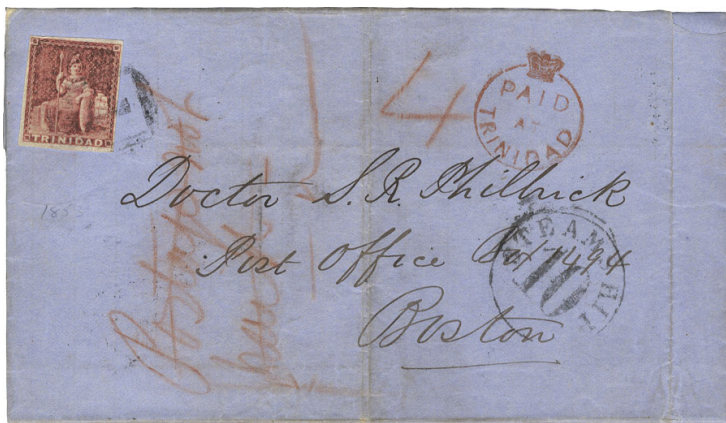 TRINIDAD
4
PAID
AT
TRINIDAD
Doctor S. R. Philbrick
Post Office Box 1494
Boston
STEAM SHIP
10
185